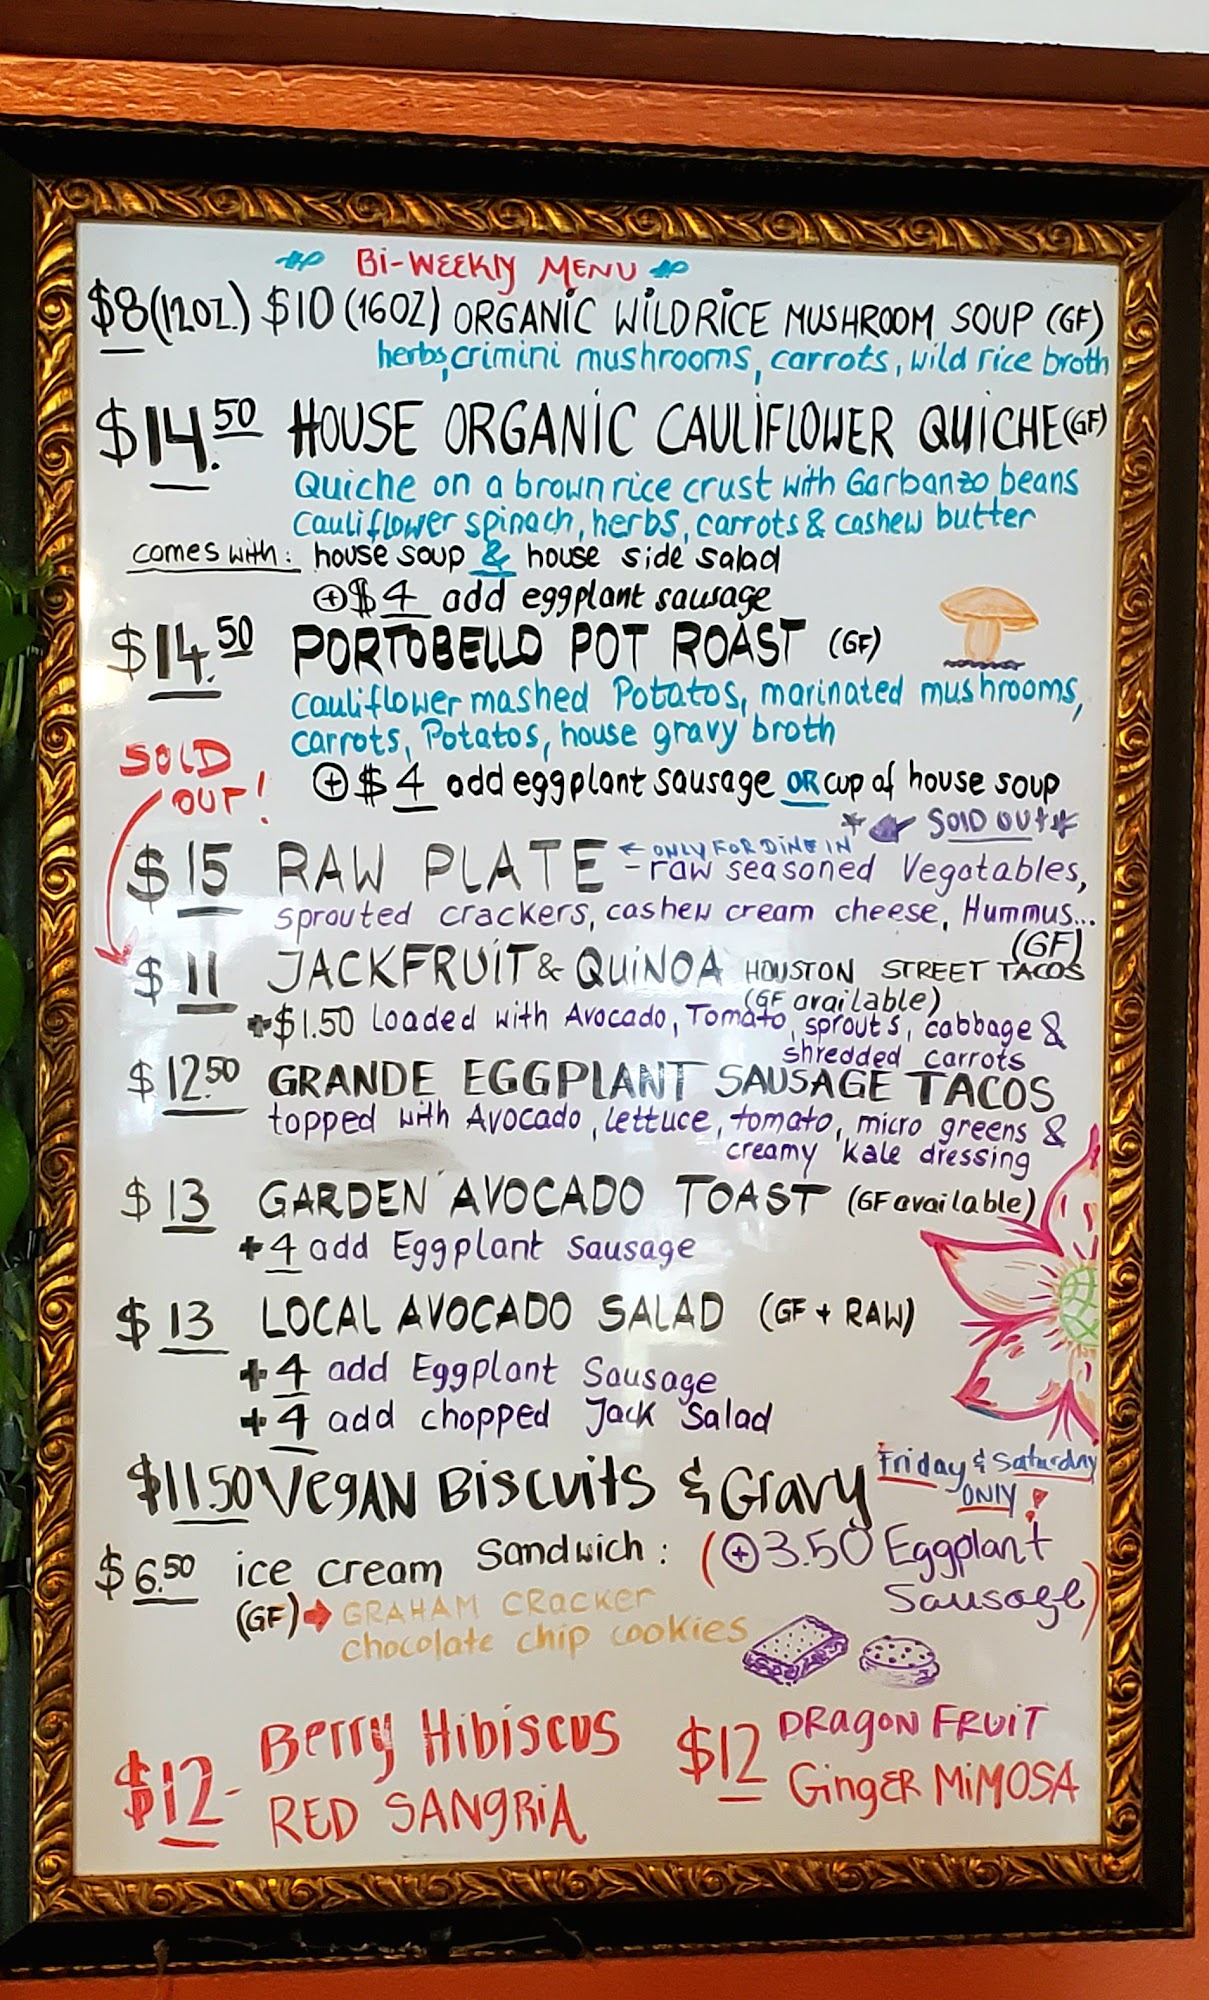 Bi-WEEKLY MENU
$8 (12OZ.) $10 (16OZ) ORGANIC WILD RICE MUSHROOM SOUP (GF)
herbs, crimini mushrooms, carrots, wild rice broth
$14.50 HOUSE ORGANIC CAULIFLOWER QUICHE (GF)
Quiche on a brown rice crust with Garbanzo beans
Cauliflower spinach, herbs, carrots & cashew butter
comes with: house soup & house side salad
+$4 add eggplant sausage
$14.50 PORTOBELLO POT ROAST (GF)
Cauliflower mashed Potatos, marinated mushrooms,
carrots, Potatos, house gravy broth
SOLD
OUT!
+$4 add eggplant sausage OR cup of house soup
* SOLD OUT *
$15 RAW PLATE ← ONLY FOR DINE IN
- raw seasoned Vegatables,
sprouted crackers, cashew cream cheese, Hummus...
(GF)
$11 JACKFRUIT & QUINOA HOUSTON STREET TACOS
(GF available)
+$1.50 Loaded with Avocado, Tomato, sprouts, cabbage &
shredded carrots
$12.50 GRANDE EGGPLANT SAUSAGE TACOS
topped with Avocado, lettuce, tomato, micro greens &
creamy kale dressing
$13 GARDEN AVOCADO TOAST (GF available)
+4 add Eggplant Sausage
$13 LOCAL AVOCADO SALAD (GF + RAW)
+4 add Eggplant Sausage
+4 add chopped Jack Salad
$11.50 VEGAN BISCUITS & Gravy Friday & Saturday
ONLY!
(+3.50 Eggplant
Sausage)
$6.50 ice cream Sandwich:
(GF) → GRAHAM CRACKER
chocolate chip cookies
$12- Berry Hibiscus
RED SANGRIA
$12 DRAGON FRUIT
GINGER MIMOSA